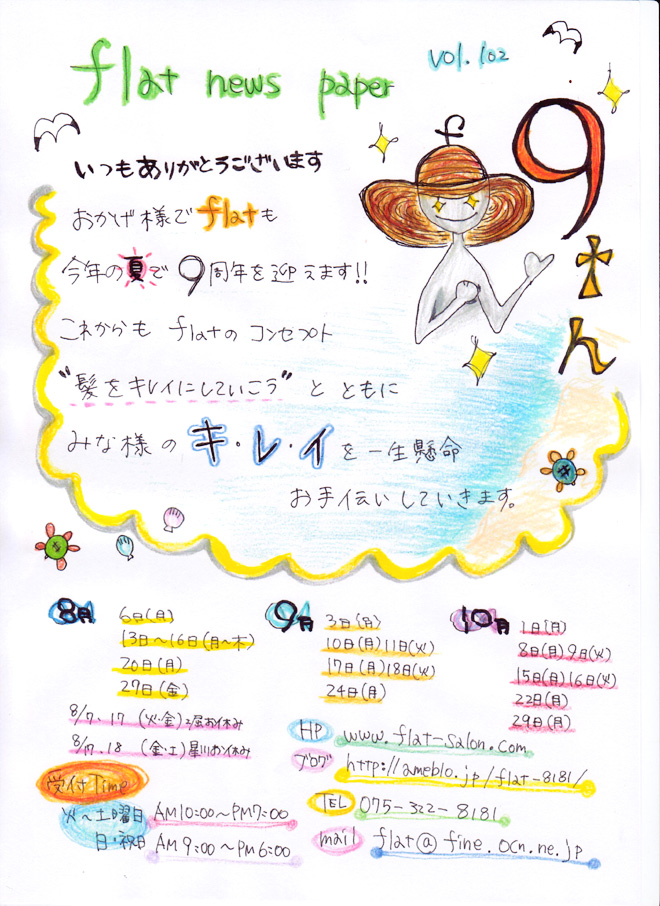 flat news paper
vol.102
9さん
いつもありがとうございます
おかげ様で flatも
今年の夏で 9周年を迎えます!!
これからも flatの コンセプト
"髪をキレイにしていこう" と ともに
みな様の キ・レ・イ を 一生懸命
お手伝いしていきます。
8月
6日(月)
13日〜16日(月〜木)
20日(月)
27日(金)
8/7.17 (火・金)
8/17.18 (金・土)
9月
3日(月)
10日(月)11日(火)
17日(月)18日(火)
24日(月)
10月
1日(月)
8日(月)9日(火)
15日(月)16日(火)
22日(月)
29日(月)
受付Time
火〜土曜日 AM10:00〜PM7:00
日・祝日 AM9:00〜PM6:00
HP www.flat-salon.com
ブログ http://ameblo.jp/flat-8181/
TEL 075-322-8181
mail flat@fine.ocn.ne.jp